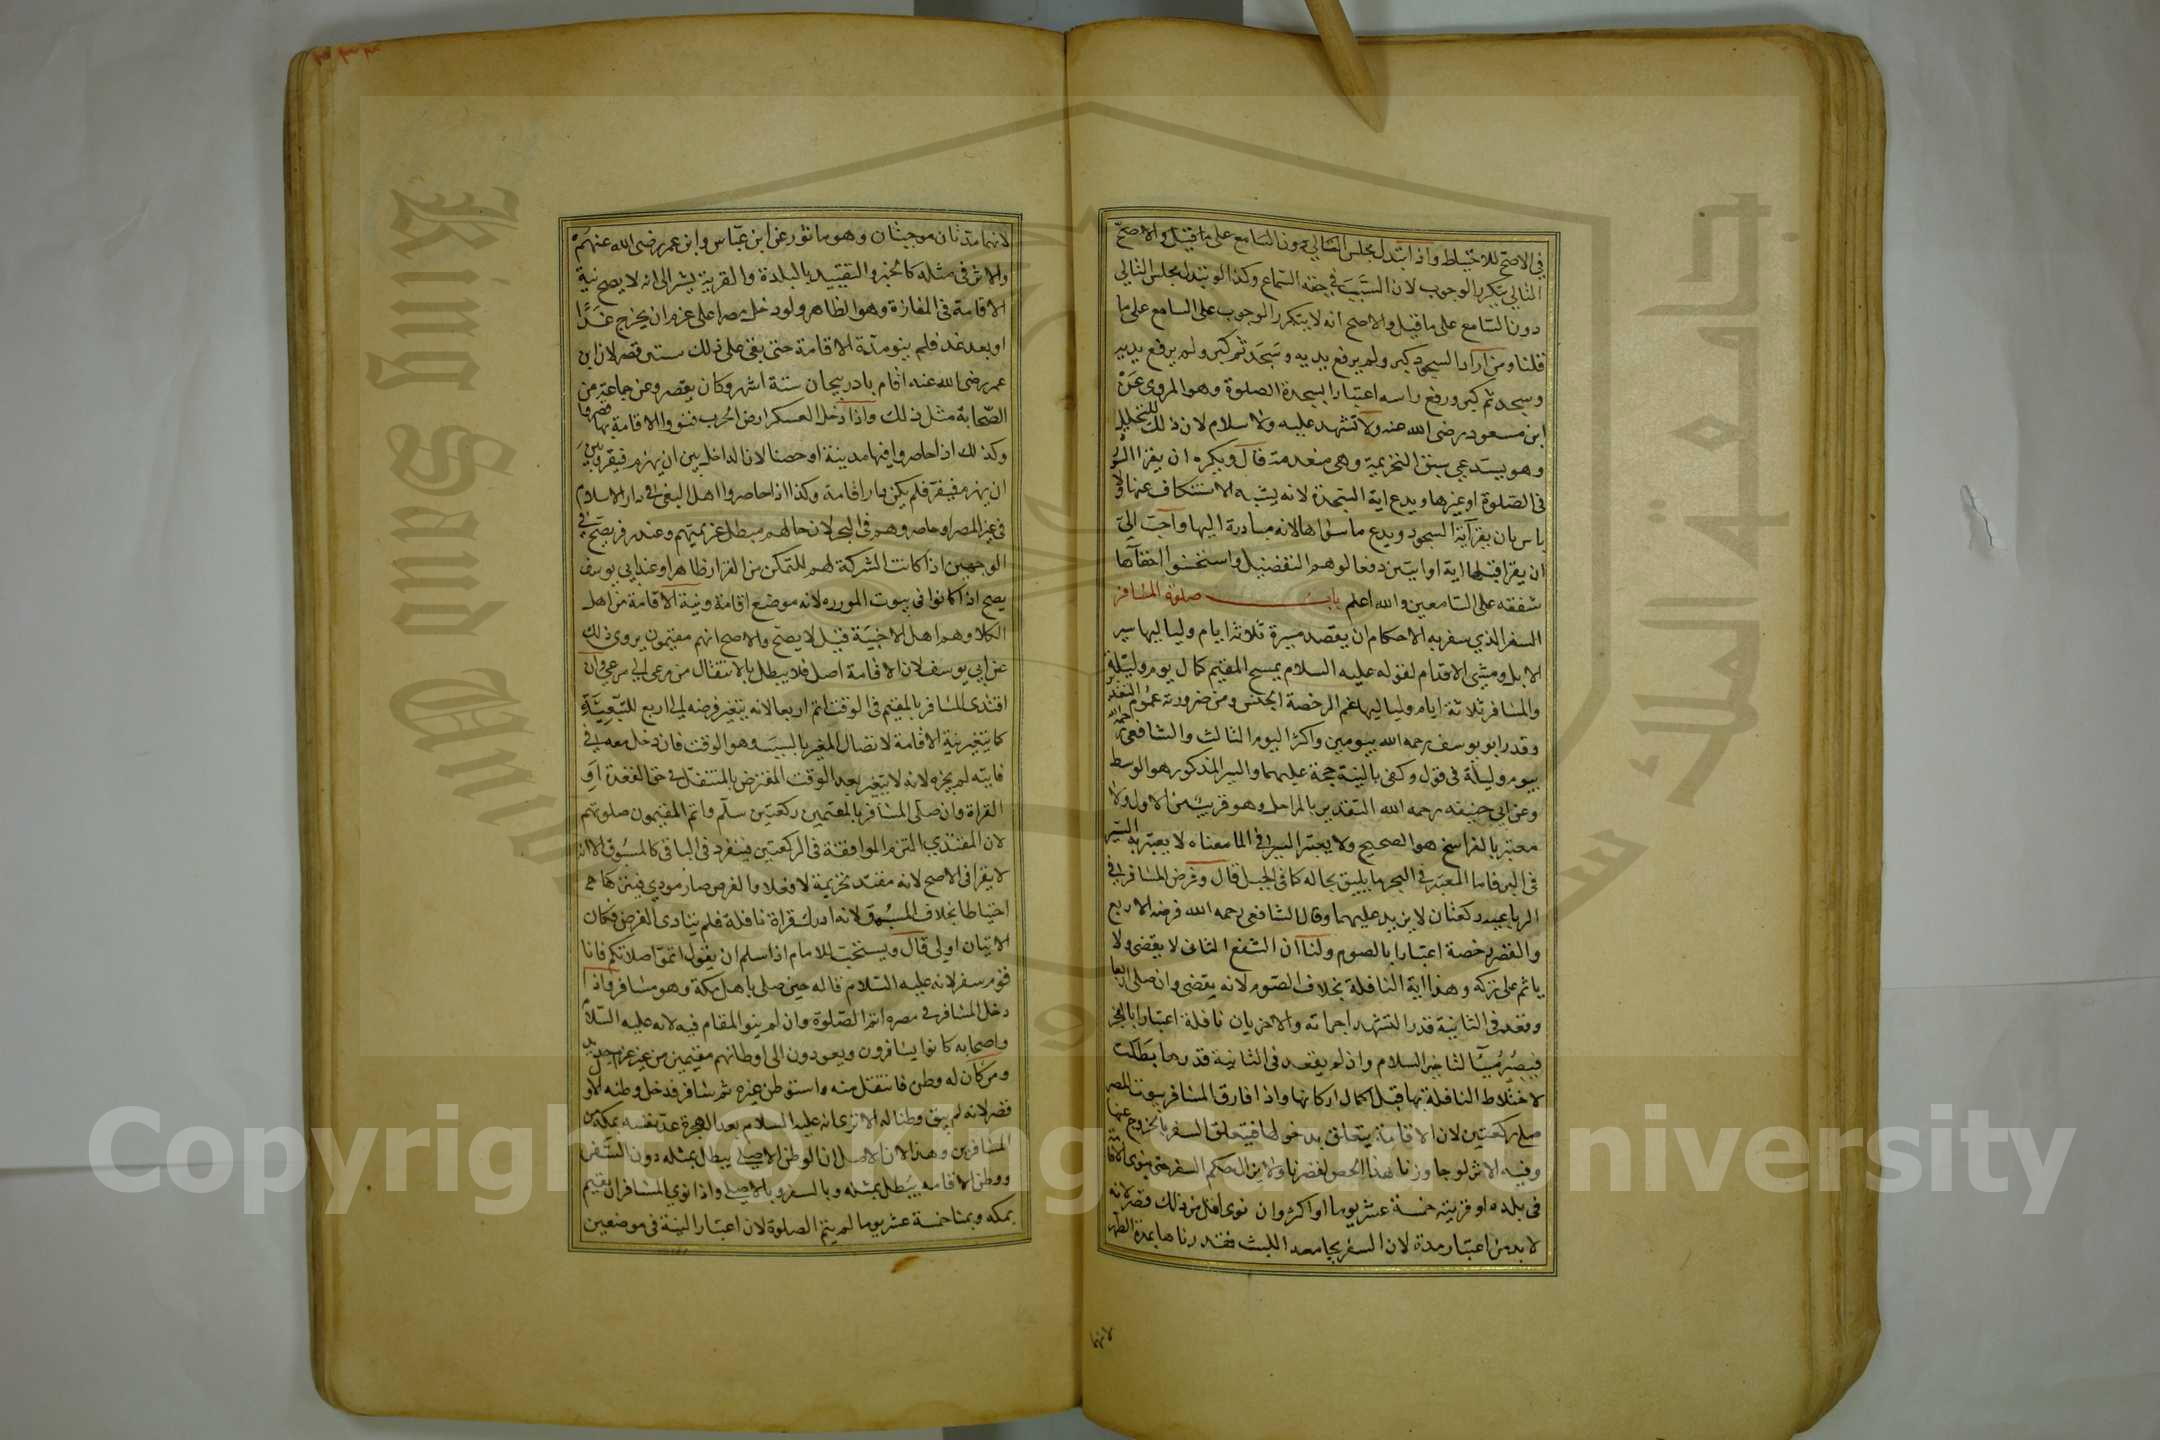 في الاصح للاحتياط واذا تبدل مجلس التالي دون السامع على ما قيل والاصح
التالي يتكرر الوجوب لان السبب في حقه السماع وكذا لو تبدل مجلس التالي
دون السامع على ما قيل والاصح انه لا يتكرر الوجوب على السامع على ما
قلنا ومن اراد السجود كبر ولم يرفع يديه وسجد ثم كبر ولم يرفع يديه
وسجد ثم كبر ورفع راسه اعتبارا بسجدة الصلوة وهو المروى عن
ابن مسعود رضى الله عنه ولا تشهد عليه ولا سلام لان ذلك للتحليل
وهو يستدعي سبق التحريمة وهى منعدمة قال ويكره ان يقرا السورة
في الصلوة او غيرها ويدع اية السجدة لانه يشبه الاستنكاف عنها ولا
باس بان يقرآ آية السجود ويدع ما سواها لانه مبادرة اليها واحب الي
ان يقرا قبلها اية او ايتين دفعا لوهم التفضيل واستحسنوا اخفآها
شفقه على السامعين والله اعلم باب صلوة المسافر
السفر الذي سفر به الاحكام ان يقصد مسيرة ثلاثة ايام ولياليها سير
الابل ومشى الاقدام لقوله عليه السلام يمسح المقيم كمال يوم وليلة
والمسافر ثلاثة ايام ولياليها عم الرخصة الجنس ومن ضرورته عموم التقدير
وقدر ابو يوسف رحمه الله بيومين واكثر اليوم الثالث والشافعى رحمه الله
بيوم وليلة في قول وكفى بالسنة حجة عليهما والسير المذكور هو الوسط
وعن ابي حنيفه رحمه الله التقدير بالمراحل وهو قريب من الاول ولا
معتبر بالفراسخ هو الصحيح ولا يعتبر السير في الما معناه لا يعتبر به السير
في البر فاما المعتبر في البحر ما يليق بحاله كما في الجبل قال وفرض المسافر في
الرباعيه ركعتان لا يزيد عليهما وقال الشافعي رحمه الله فرضه الاربع
والقصر رخصة اعتبارا بالصوم ولنا ان الشفع الثانى لا يقضى ولا
ياثم على تركه وهذا اية النافلة بخلاف الصوم لانه يقضى وان صلى اربعا
وقعد في الثانية قدر التشهد اجزاته والاخريان نافلة اعتبارا بالفجر
فيصير مسيئا لتاخير السلام وان لم يقعد في الثانية قدرها بطلت
لاختلاط النافلة بها قبل اكمال اركانها واذا فارق المسافر بيوت المصر
صلى ركعتين لان الاقامة يتعلق بدخولها فيتعلق السفر بالخروج عنها
وفيه الاثر لو جاوزنا هذا الخص لقصرنا ولا يزال حكم السفر حتى ينوى الاقامة
في بلده او قريته خمسة عشر يوما او اكثر وان نوى اقل من ذلك قصر لانه
لا بد من اعتبار مدة لان السفر يجامعه اللبث فقدرناها بمدة الطهر
لانهما
لانهما مدتان موجبتان وهو ماثور عن ابن عباس وابن عمر رضى الله عنهم
والاثر في مثله كالخبر والتقييد بالبلدة والقرية يشير الى انه لا يصح نية
الاقامة في المفازة وهو الظاهر ولو دخل مصرا على عزم ان يخرج غدا
او بعد غد فلم ينو مدة الاقامة حتى بقى على ذلك سنتين قصر لان ابن
عمر رضى الله عنه اقام باذربيجان ستة اشهر وكان يقصر وعن جماعة من
الصحابة مثل ذلك واذا دخل العسكر ارض الحرب فنووا الاقامة بها قصروا
وكذلك اذا حاصروا فيها مدينة او حصنا لان الداخل بين ان يهزم فيقر وبين
ان يهزم فيفر فلم يكن دار اقامة وكذا اذا حاصروا اهل البغى في دار الاسلام
في غير المصر او حاصروهم في البحر لان حالهم مبطل عزيمتهم وعند زفر يصح في
الوجهين اذا كانت الشركة لهم للتمكن من القرار ظاهرا وعند ابي يوسف
يصح اذا كانوا في بيوت المدر ده لانه موضع اقامة ونية الاقامة من اهل
الكلا وهم اهل الاخبية قيل لا يصح والاصح انهم مقيمون يروى ذلك
عن ابي يوسف لان الاقامة اصل فلا يبطل بالانتقال من مرعى الى مرعى وان
اقتدى المسافر بالمقيم في الوقت اتم اربعا لانه يتغير فرضه الى اربع للتبعية
كما يتغير بنية الاقامة لاتصال المغير بالسبب وهو الوقت فان دخل معه في
فايتة لم يجزه لانه لا يتغير بعد الوقت المفترض بالمتنفل في حق القعدة او
القراة وان صلى المسافر بالمقيمين ركعتين سلم واتم المقيمون صلوتهم
لان المقتدي التزم الموافقة في الركعتين فينفرد في الباقى كالمسبوق الا انه
لا يقرا في الاصح لانه مقتد تحريمة لا فعلا والفرض صار مودي فيتركها
احتياطا بخلاف المسبوق لانه ادرك قراة نافلة فلم يتادى الفرض فكان
الاتيان اولى قال ويستحب للامام اذا سلم ان يقول اتموا صلاتكم فانا
قوم سفر لانه عليه السلام قاله حين صلى باهل مكة وهو مسافر واذا
دخل المسافر في مصره اتم الصلوة وان لم ينو المقام فيه لانه عليه السلام
واصحابه كانوا يسافرون ويعودون الى اوطانهم مقيمين من غير عزم جديد
ومن كان له وطن فانتقل منه واستوطن غيره ثم سافر فدخل وطنه الاول
قصر لانه لم يبق وطنا له الا ترى انه عليه السلام بعد الهجرة عد نفسه بمكة من
المسافرين وهذا لان الاصل ان الوطن الاصلي يبطل بمثله دون السفر
ووطن الاقامه يبطل بمثله وبالسفر وبالاصلي واذا نوي المسافر ان يقيم
بمكه وبمنا خمسة عشر يوما لم يتم الصلوة لان اعتبار النية في موضعين
King Saud University
جامعة الملك سعود
Copyright © King Saud University